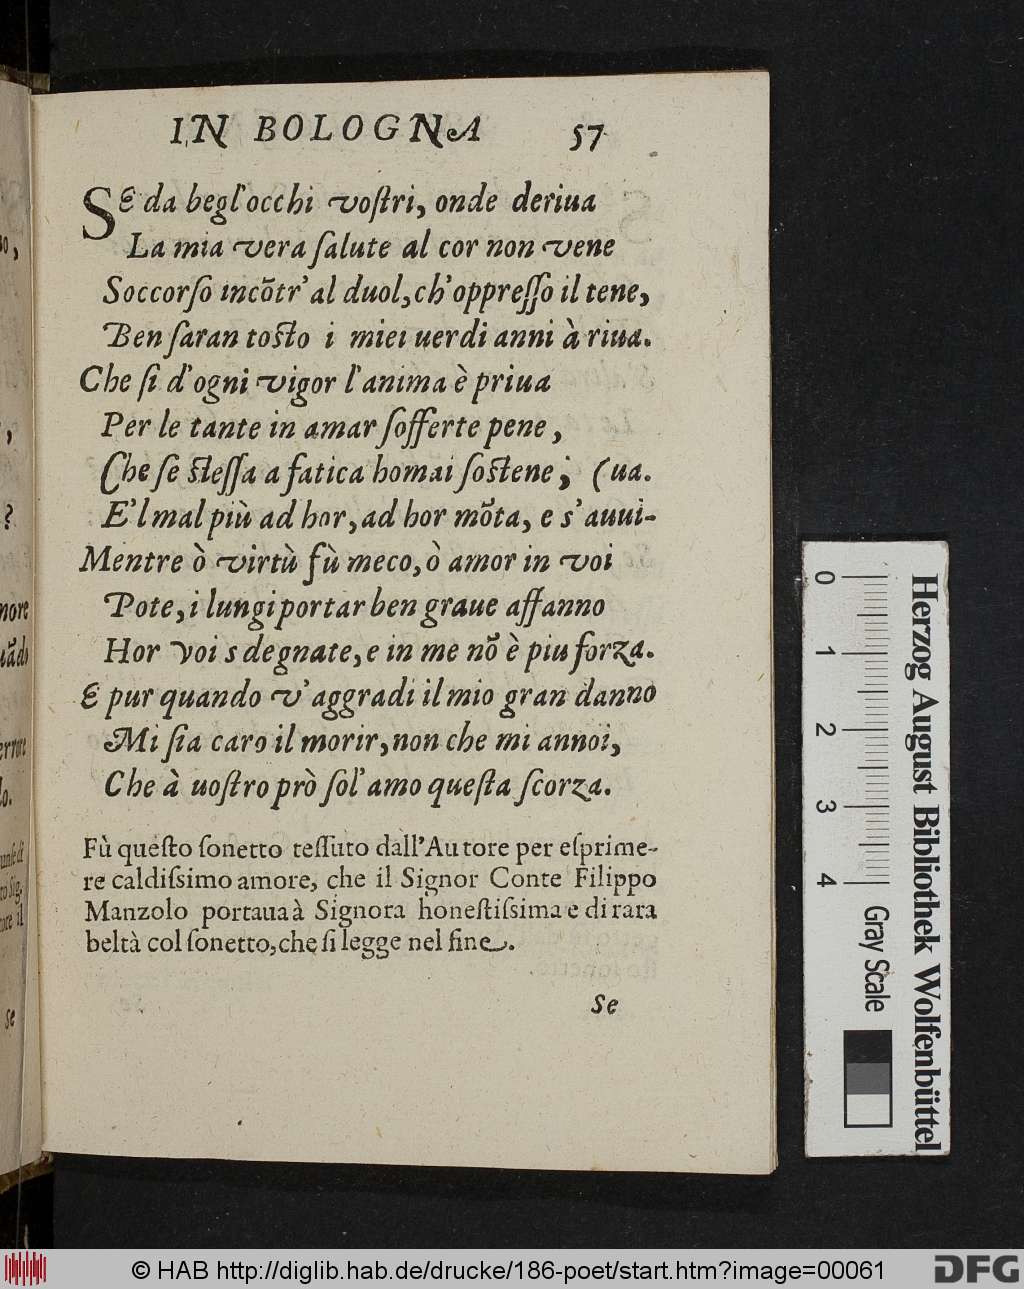 IN BOLOGNA 57
SE da begl'occhi voſtri, onde deriua
La mia vera ſalute al cor non vene
Soccorſo incõtr'al duol, ch'oppreſſo il tene,
Ben ſaran toſto i miei uerdi anni à riua.
Che ſi d'ogni vigor l'anima è priua
Per le tante in amar ſofferte pene,
Che ſe ſteſſa a fatica homai ſoſtene; (ua.
E'l mal più ad hor, ad hor mõta, e s'auui-
Mentre ò virtù fù meco, ò amor in voi
Pote, i lungi portar ben graue affanno
Hor voi sdegnate, e in me nõ è piu forza.
E pur quando v'aggradi il mio gran danno
Mi ſia caro il morir, non che mi annoi,
Che à uoſtro prò ſol'amo queſta ſcorza.
Fù queſto ſonetto teſſuto dall'Autore per eſprime-
re caldiſsimo amore, che il Signor Conte Filippo
Manzolo portaua à Signora honeſtiſsima e di rara
beltà col ſonetto, che ſi legge nel fine.
Se
o,
,
?
more
uãdo
errore
lo.
Se
0 1 2 3 4
Gray Scale
Herzog August Bibliothek Wolfenbüttel
© HAB http://diglib.hab.de/drucke/186-poet/start.htm?image=00061
DFG